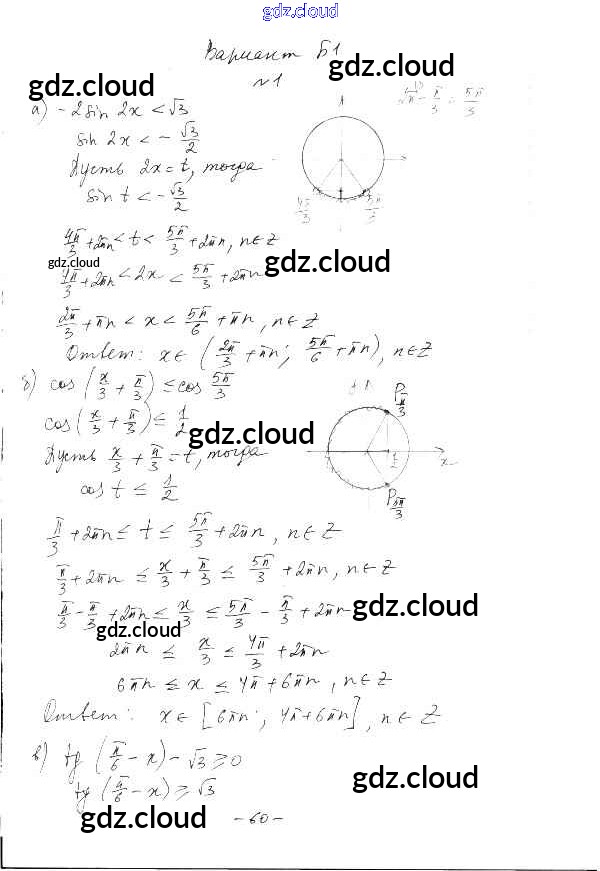 gdz.cloud
Вариант Б1
gdz.cloud
gdz.cloud
№1
а) -2sin 2x < √3
sin 2x < - √3/2
Пусть 2x = t, тогда
sin t < - √3/2
4π/3 5π/3
4π/3 + 2πn < t < 5π/3 + 2πn, n∈Z
gdz.cloud
gdz.cloud
4π/3 + 2πn < 2x < 5π/3 + 2πn
2π/3 + πn < x < 5π/6 + πn, n∈Z
Ответ: x∈ (2π/3 + πn; 5π/6 + πn), n∈Z
б) cos (x/3 + π/3) ≤ cos 5π/3
cos (x/3 + π/3) ≤ 1/2
gdz.cloud
Пусть x/3 + π/3 = t, тогда
cos t ≤ 1/2
P π/3
1/2 x
P 5π/3
π/3 + 2πn ≤ t ≤ 5π/3 + 2πn, n∈Z
π/3 + 2πn ≤ x/3 + π/3 ≤ 5π/3 + 2πn, n∈Z
π/3 - π/3 + 2πn ≤ x/3 ≤ 5π/3 - π/3 + 2πn
gdz.cloud
gdz.cloud
2πn ≤ x/3 ≤ 4π/3 + 2πn
6πn ≤ x ≤ 4π + 6πn, n∈Z
Ответ: x∈ [6πn; 4π + 6πn], n∈Z
в) tg (π/6 - x) - √3 ≥ 0
tg (π/6 - x) ≥ √3
gdz.cloud
gdz.cloud
- 60 -